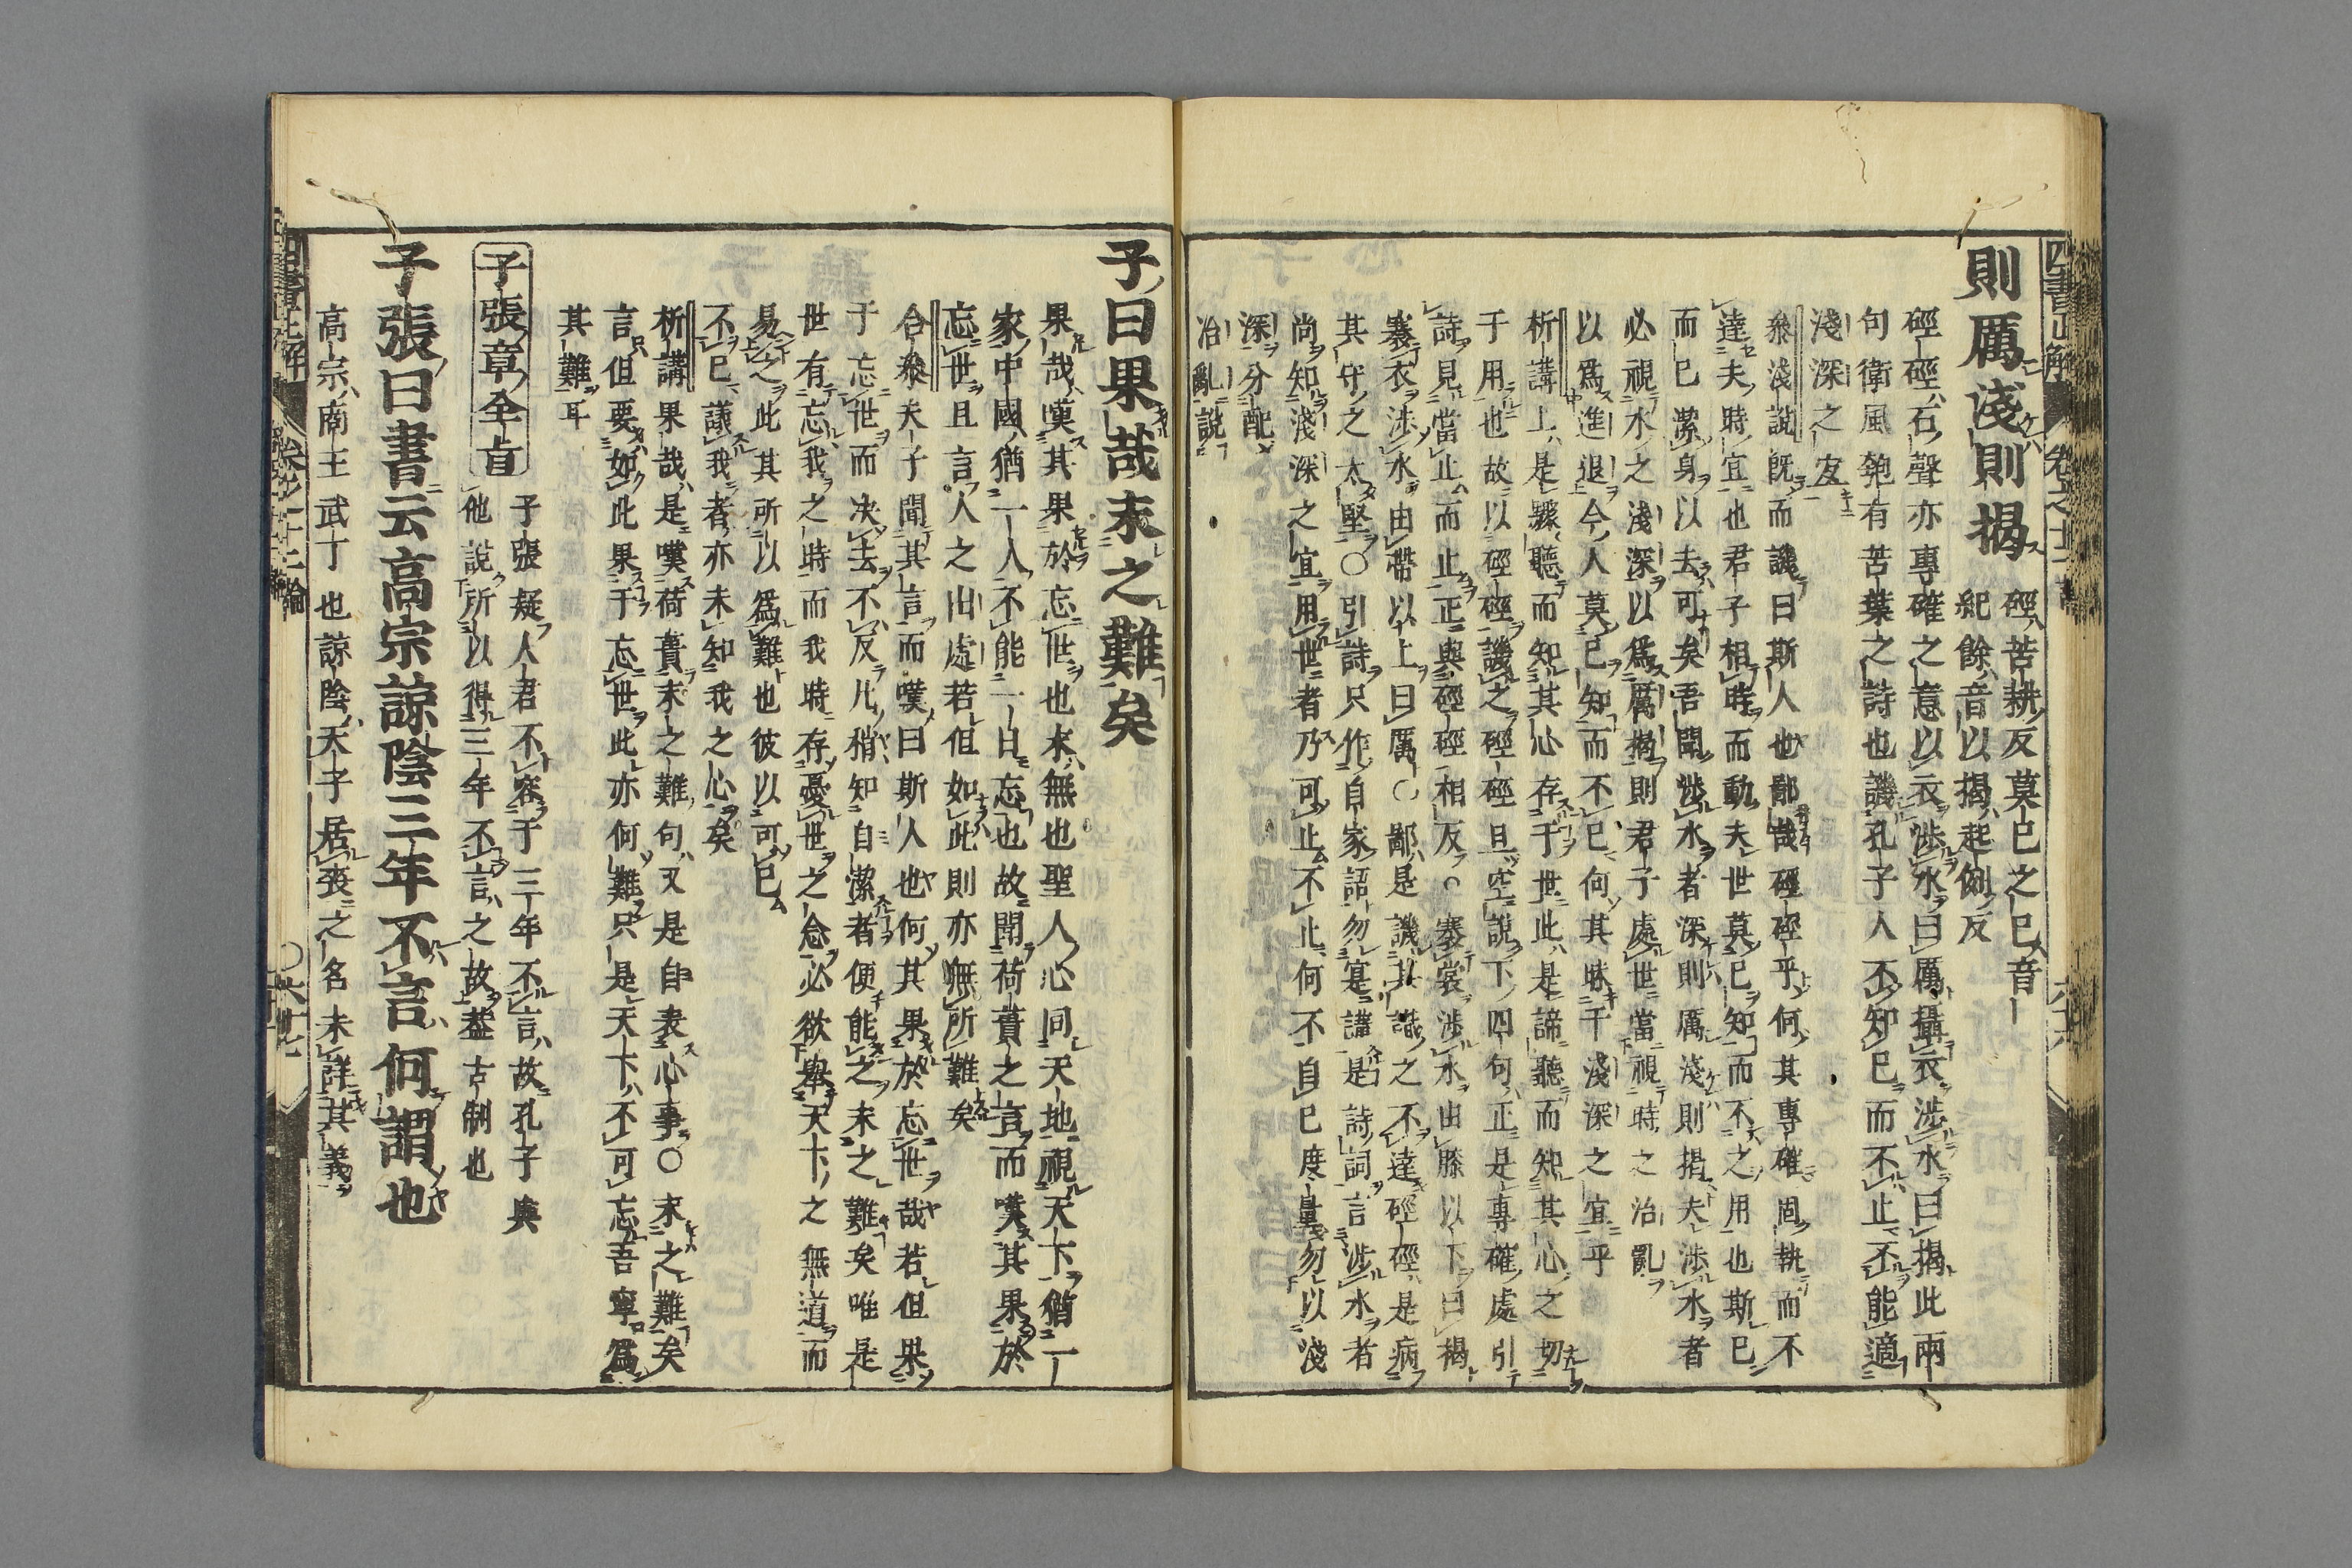 則厲淺則揭
硜苦耕反莫已之已音
紀餘音以揭起例反
硜硜石聲亦專確之意以衣渉水曰厲攝衣渉水曰揭此兩
句衛風匏有苦葉之詩也譏孔子人不知已而不止不能適
淺深之宜
叅淺說旣而譏曰斯人也鄙哉硜硜乎何其專確固執而不
達夫時宜也君子相時而動夫世莫已知而不之用也斯已
而已潔身以去可矣吾聞渉水者深則厲淺則揭夫渉水者
必視水之淺深以爲厲揭則君子處世當視時之治亂
以爲進退今人莫已知而不已何其昧于淺深之宜乎
析講上是驟聽而知其心存于世此是諦聽而知其心之切
于用也故以硜硜譏之硜硜且空說下四句正是專確處引
詩見當止而止正與硜硜相反○褰裳渉水由膝以下曰揭
褰衣渉水由帶以上曰厲○鄙是譏其識之不達硜硜是病
其守之太堅○引詩只作自家語勿寔講是詩詞言渉水者
尚知淺深之宜用世者乃可止不止何不自已度量勿以淺
深分配
治亂說
子曰果哉末之難矣
果哉嘆其果於忘世也末無也聖人心同天地視天下猶一
家中國猶一人不能一日忘也故聞荷蕢之言而嘆其果於
忘世且言人之出處若但如此則亦無所難矣
合叅夫子聞其言而嘆曰斯人也何其果於忘世哉若但果
于忘世而决去不反凡稍知自潔者便能之末之難矣唯是
世有忘我之時而我時存憂世之念必欲舉天下之無道而
易之此其所以爲難也彼以可已
不已議我者亦未知我之心矣
析講果哉是嘆荷蕢末之難句又是自表心事○末之難矣
言但要如此果于忘世此亦何難只是天下不可忘吾寧爲
其難耳
子張章全旨
子張疑人君不容于三年不言故孔子與
他說所以得三年不言之故葢古制也
子張曰書云高宗諒陰三年不言何謂也
高宗商王武丁也諒陰天子居喪之名未詳其義